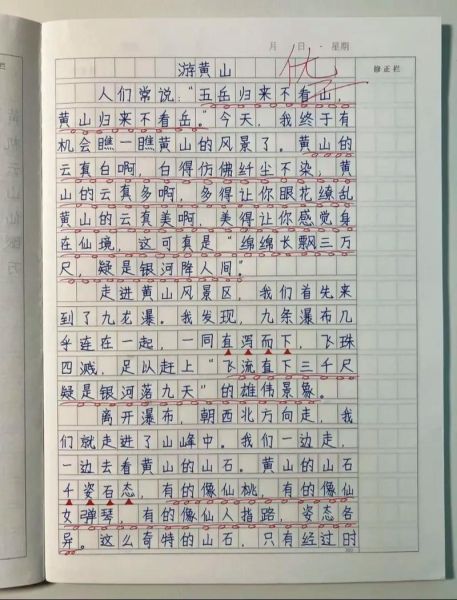 月 日 · 星期
优
修正栏
游黄山
人们常说:“五岳归来不看山,
黄山归来不看岳。”今天,我终于有
机会瞧一瞧黄山的风景了。黄山的
云真白啊,白得仿佛纤尘不染,黄
山的云真多啊,多得让你眼花缭乱
黄山的云真美啊 美得让你感觉身
在仙境,这可真是“绵绵长飘三万
尺,疑是银河降人间。”
走进黄山风景区,我们首先来
到了九龙瀑。我发现,九条瀑布几
乎连在一起,一同直泻而下,飞珠
四溅,足以赶上“飞流直下三千尺
疑是银河落九天”的雄伟景象。
离开瀑布,朝西北方向走,我
们就走进了山峰中。我们一边走,
一边去看黄山的山石。黄山的山石
千姿石态,有的像仙桃,有的像仙
女弹琴,有的像仙人指路,姿态各
异。这么奇特的山石,只有经过时